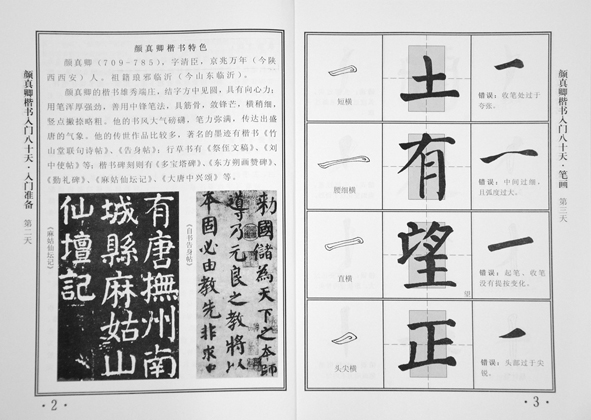 颜真卿楷书入门八十天·入门准备 第二天
颜真卿楷书特色
颜真卿(709-785),字清臣,京兆万年(今陕
西西安)人。祖籍琅邪临沂(今山东临沂)。
颜真卿的楷书雄秀端庄,结字方中见圆,具有向心力;
用笔浑厚强劲,善用中锋笔法,具筋骨,敛锋芒,横稍细,
竖点撇捺略粗。他的书风大气磅礴,笔力弥满,传达出盛
唐的气象。他的传世作品比较多,著名的墨迹有楷书《竹
山堂联句诗帖》、《告身帖》;行草书有《祭侄文稿》、《刘
中使帖》等;楷书碑刻则有《多宝塔碑》、《东方朔画赞碑》、
《勤礼碑》、《麻姑仙坛记》、《大唐中兴颂》等。
有唐撫州南
城縣麻姑山
仙壇記
《麻姑仙坛记》
敕國儲為天下之本師
導乃元良之教將以
本固必由教先非求中
《自书告身帖》
·2·
短横
土
错误:收笔处过于
夸张。
腰细横
有
错误:中间过细,
且弧度过大。
直横
望
望
错误:起笔、收笔
没有提按变化。
头尖横
正
错误:头部过于尖
锐。
颜真卿楷书入门八十天·笔画 第三天
·3·